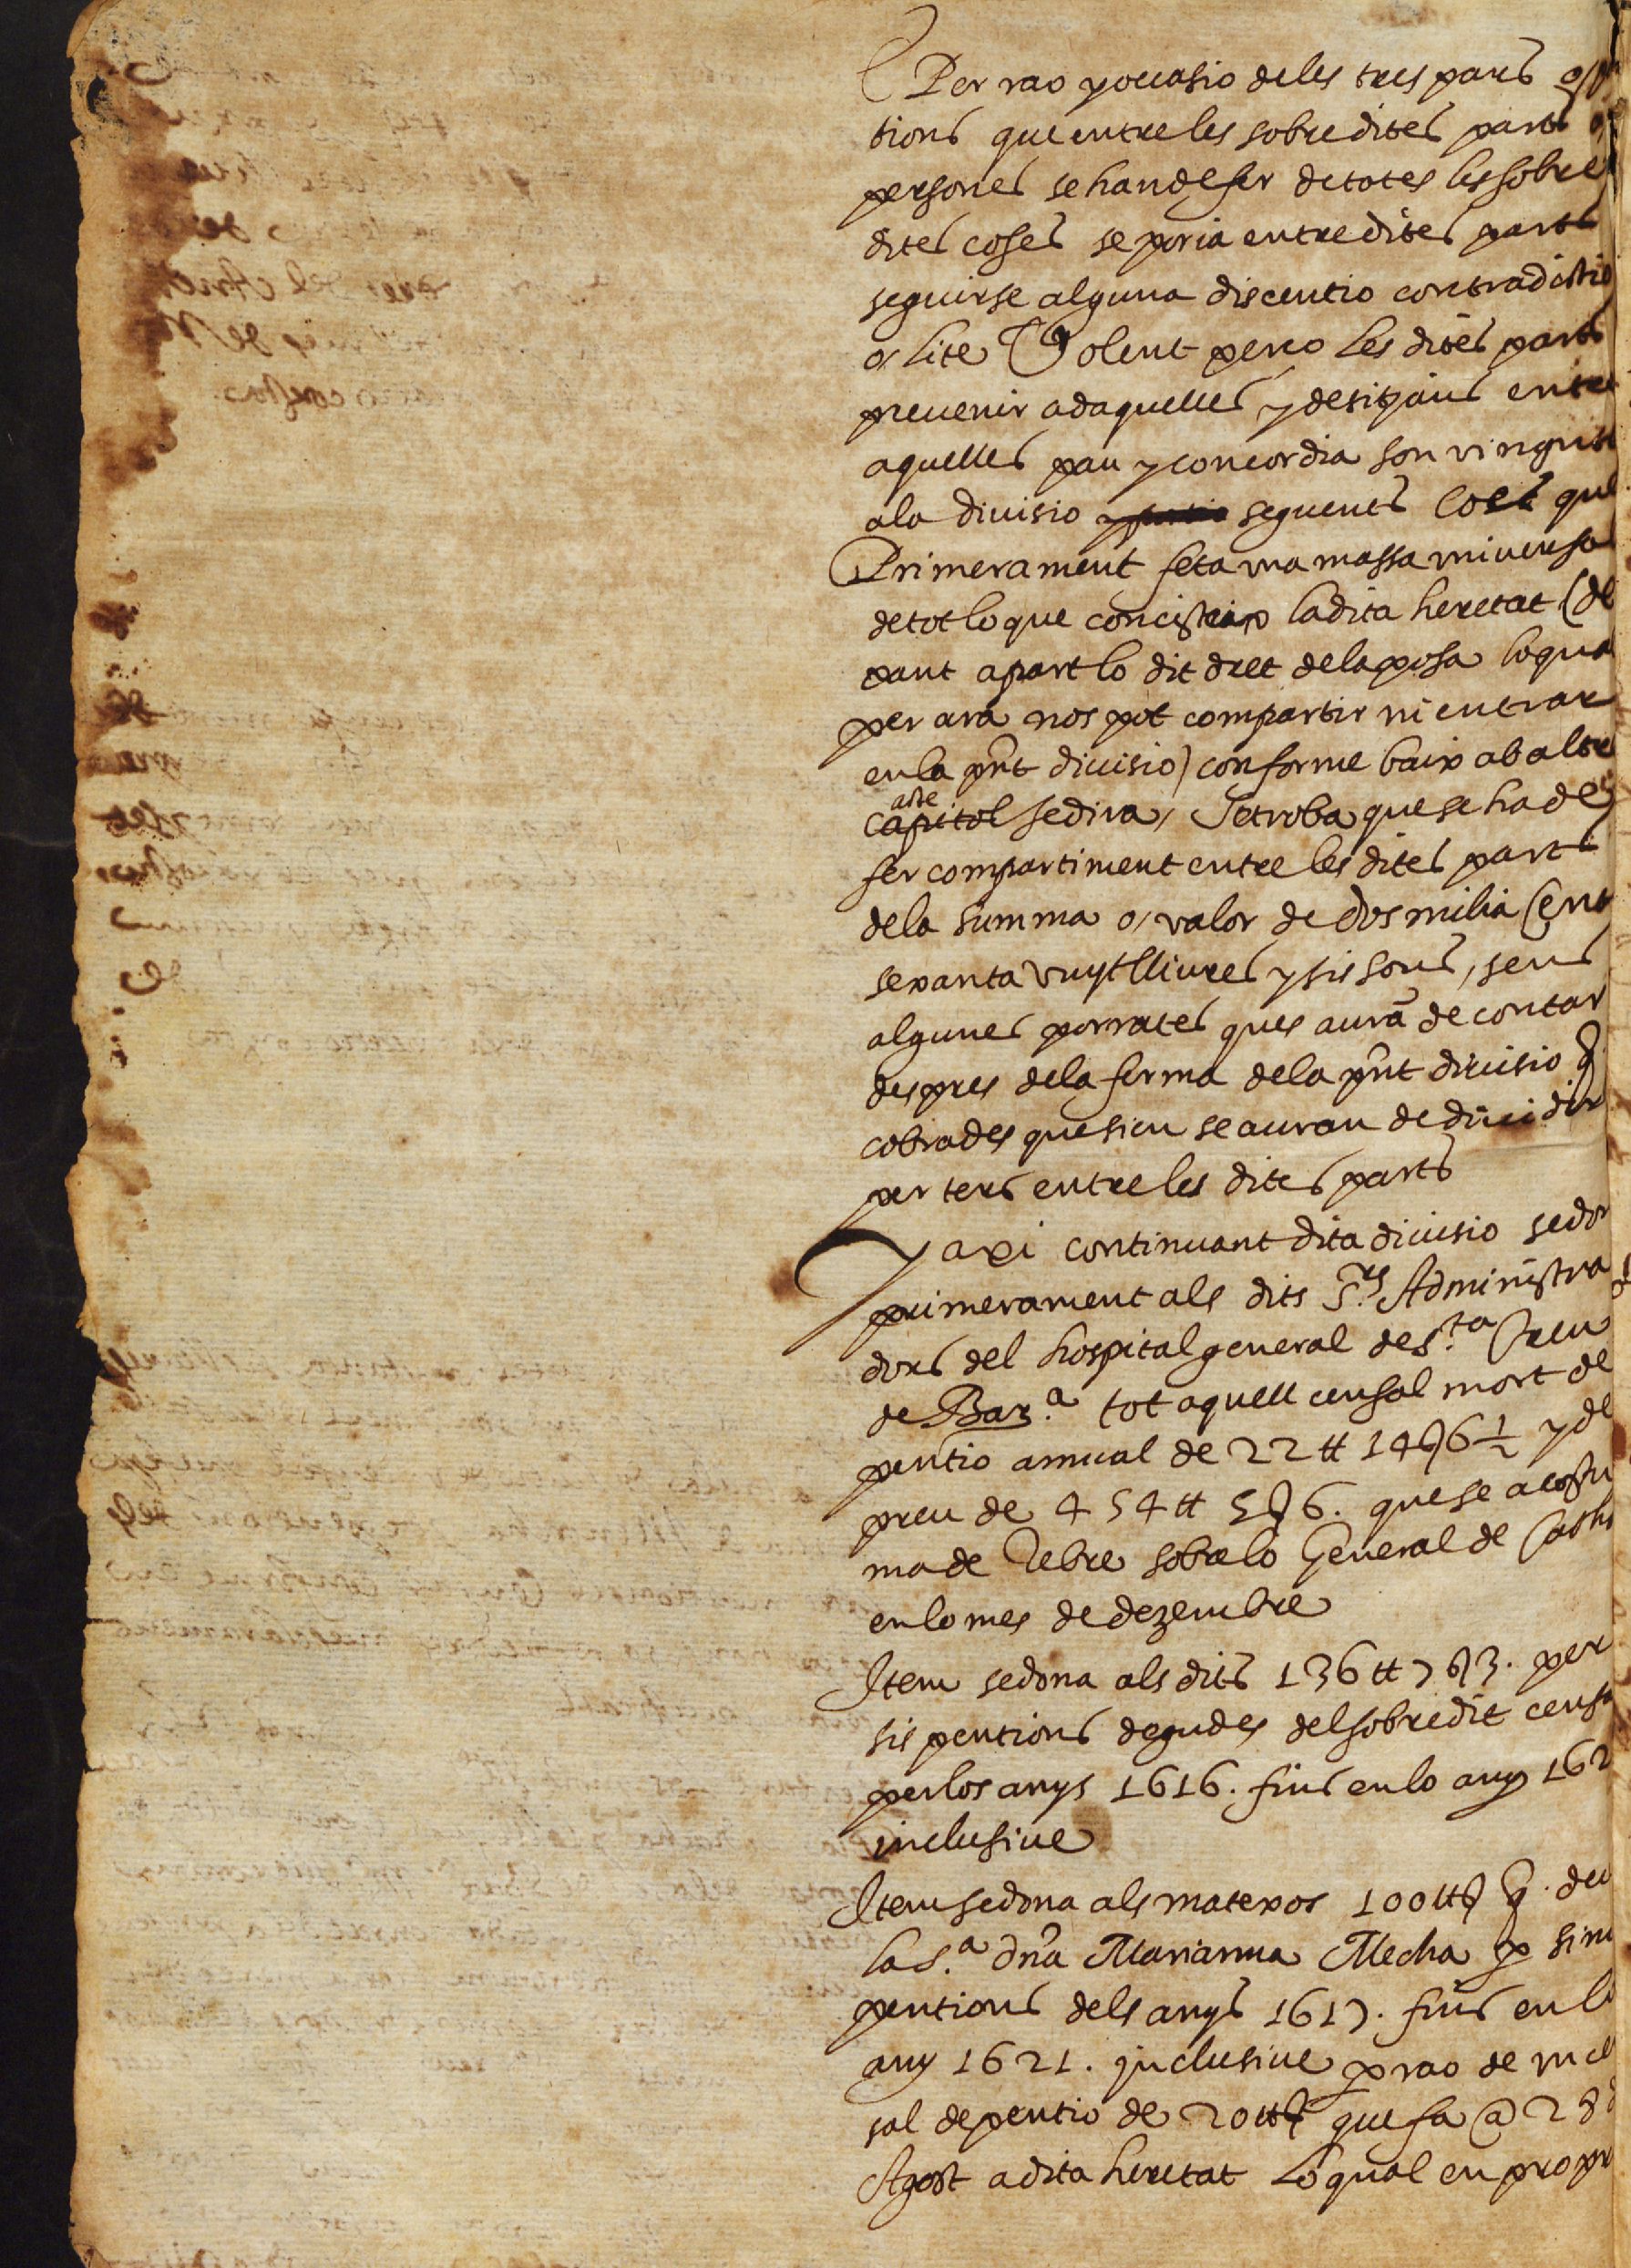 Per rao y occasio de les tres parts
tions que entre les sobredites parts
persones se han de fer de totes les sobre
dites coses se poria entre dites parts
seguirse alguna discentio contradictio
o, lite Volent perço les dites parts
prevenir ad aquelles y desitjant entre
aquelles pau y concordia son vinguts
a la divisio seguents Ço es que
Primerament feta una massa universal
de tot lo que concisteix la dita heretat (de
xant apart lo dit dret de la posa lo qual
per ara nos pot compartir ni entrar
en la pñt divisio) conforme baix ab altre
capitol se dira, Se troba que se ha de
fer compartiment entre les dites parts
de la summa o, valor de dos milia Cent
sexanta vuyt lliures y sis sous, sens
algunes porrates ques aurã de contar
despres de la ferma de la pñt divisio q
cobrades que sien se auran de dividir
per ters entre les dites parts
Y axi continuant dita divisio se do
primerament als dits S.rs Administra
dors del hospital general de S.ta Creu
de Bar.a tot aquell censal mort de
pentio annual de 22 ₶ 14 ꞩ 6 ½ y de
preu de 454 ₶ 5 ꞩ 6. que se acostu
ma de rebre sobre lo General de Catha
en lo mes de dezembre
Item se dona als dits 136 ₶ 7 ꞩ 3. per
sis pentions degudes del sobredit censal
per los anys 1616. fins en lo any 162
inclusive
Item se dona als matexos 100 ₶ ꞩ q. deu
la S.a dña Marianna Mecha p sinc
pentions dels anys 1617. fins en lo
any 1621. inclusive p rao de un cen
sal de pentio de 20 ₶ ꞩ que fa @ 28
Agost a dita heretat Lo qual en propr